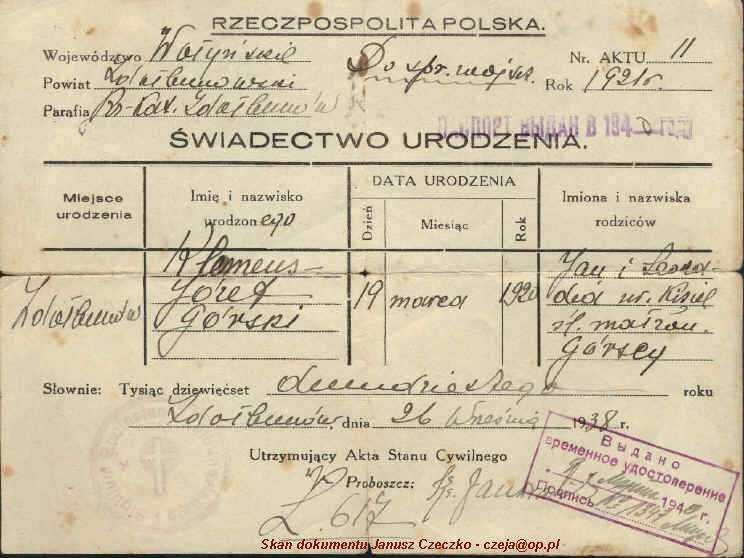 RZECZPOSPOLITA POLSKA.
Województwo Wołyńskie
Do spr. wojsk.
Nr. AKTU 11
Powiat Zdołbunowski
Rok 1921 r.
Parafja Rz-Kat. Zdołbunów
ПАСПОРТ ВЫДАН В 194 ГОДУ
ŚWIADECTWO URODZENIA.
Miejsce urodzenia
Imię i nazwisko urodzonego
DATA URODZENIA
Dzień
Miesiąc
Rok
Imiona i nazwiska rodziców
Zdołbunów
Klemens
Józef
Górski
19
marca
1920
Jan i Leoka-
dia ur. Kiziel
śl. małżon.
Górscy
Słownie: Tysiąc dziewięćset dwudziestego roku
Zdołbunów, dnia 26 Września 1938 r.
Utrzymujący Akta Stanu Cywilnego
Proboszcz: Ks. Jan
L. 617
Выдано
временное удостоверение
194 г.
Подпись
Skan dokumentu Janusz Czeczko - czeja@op.pl